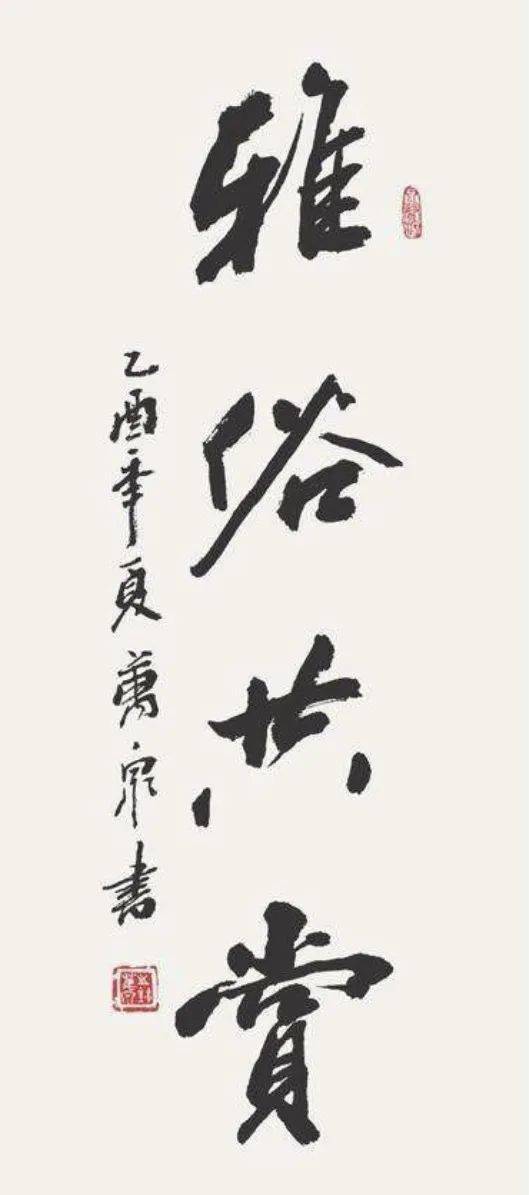 雅俗共赏
乙酉年夏萬泉書